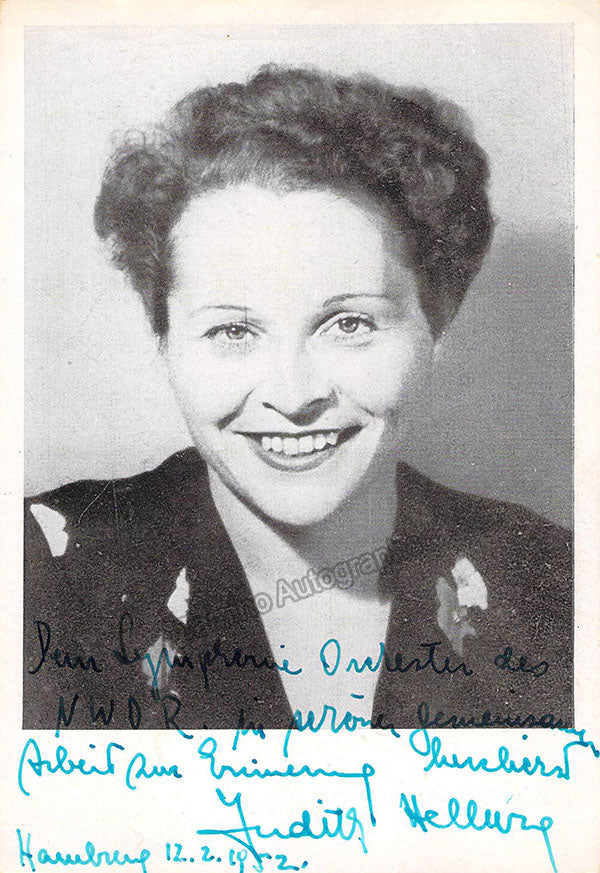 Dem Symphonie Orchester des
NWDR, zu schöner gemeinsamer
Arbeit zur Erinnerung herzlichst
Judith Hellwig
Hamburg 12.2.1952.